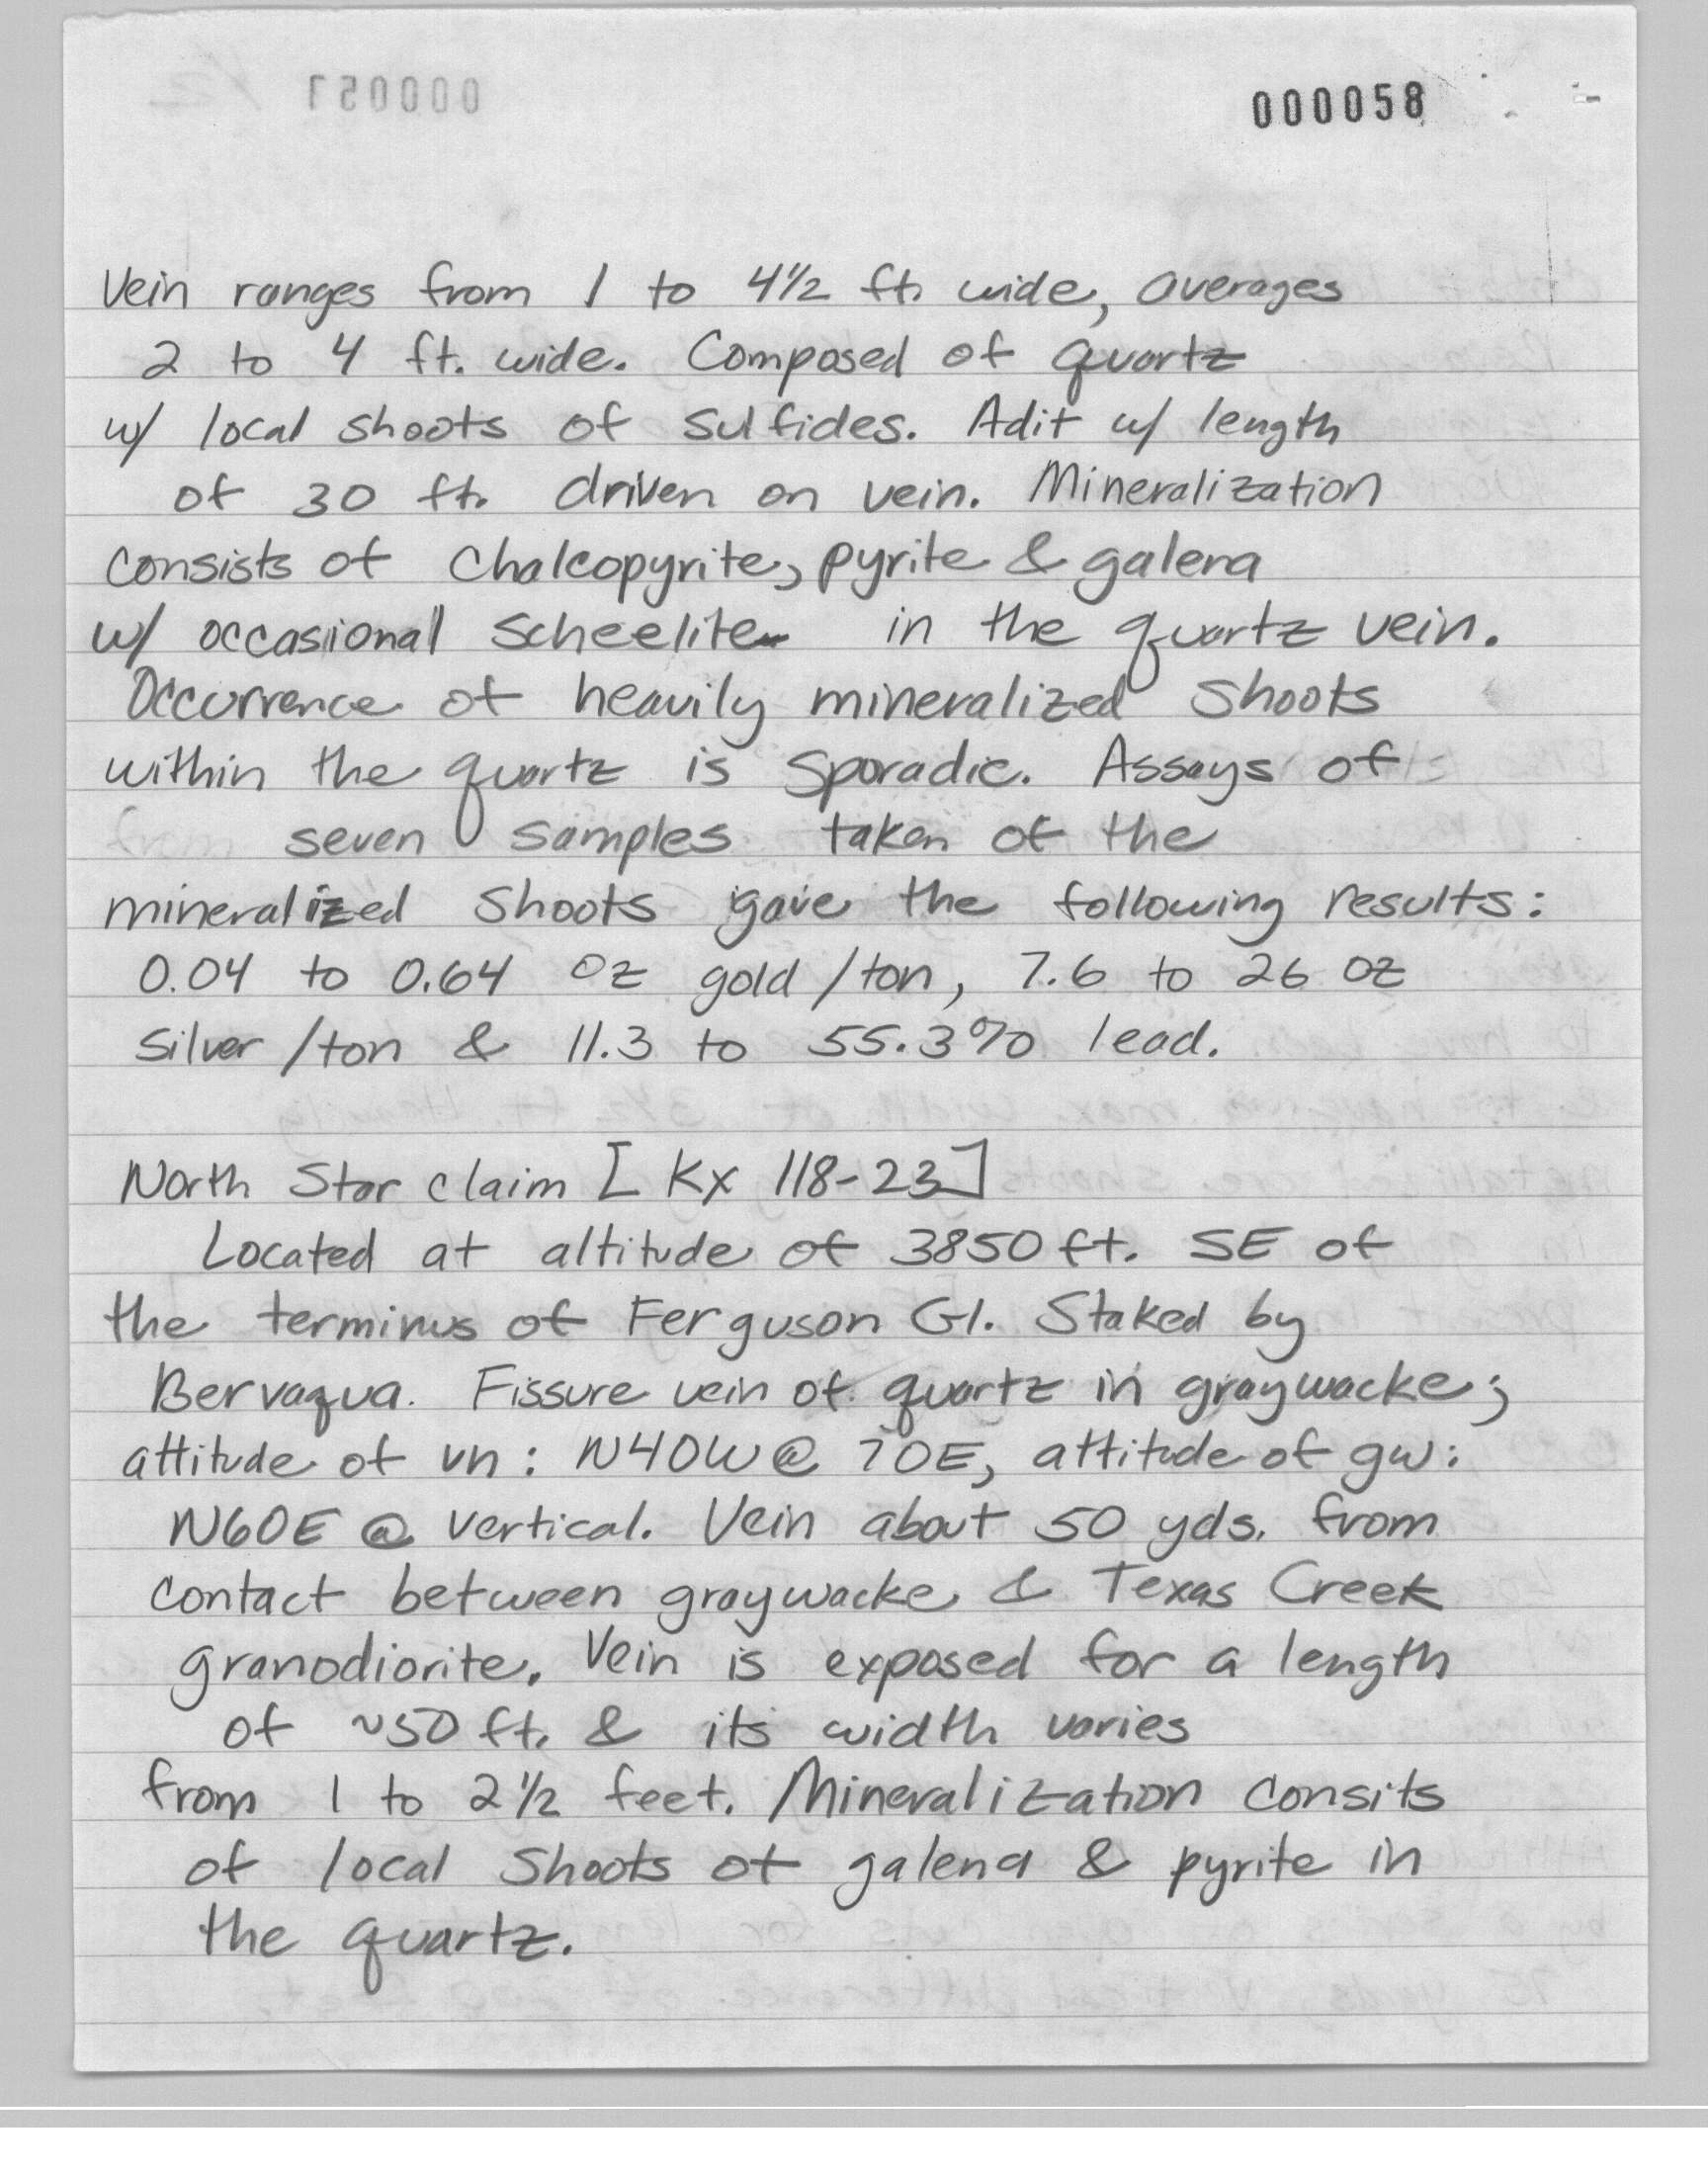 000058
Vein ranges from 1 to 4½ ft. wide, averages
2 to 4 ft. wide. Composed of quartz
w/ local shoots of sulfides. Adit w/ length
of 30 ft. driven on vein. Mineralization
consists of chalcopyrite, pyrite & galena
w/ occasional scheelite in the quartz vein.
Occurrence of heavily mineralized shoots
within the quartz is sporadic. Assays of
seven samples taken of the
mineralized shoots gave the following results:
0.04 to 0.64 oz gold /ton, 7.6 to 26 oz
silver /ton & 11.3 to 55.3% lead.
North Star claim [Kx 118-23]
Located at altitude of 3850 ft. SE of
the terminus of Ferguson Gl. Staked by
Bervaqua. Fissure vein of quartz in graywacke;
attitude of vn: N40W @ 70E, attitude of gw:
N60E @ vertical. Vein about 50 yds. from
contact between graywacke & Texas Creek
granodiorite. Vein is exposed for a length
of ~50 ft. & its width varies
from 1 to 2½ feet. Mineralization consits
of local shoots of galena & pyrite in
the quartz.